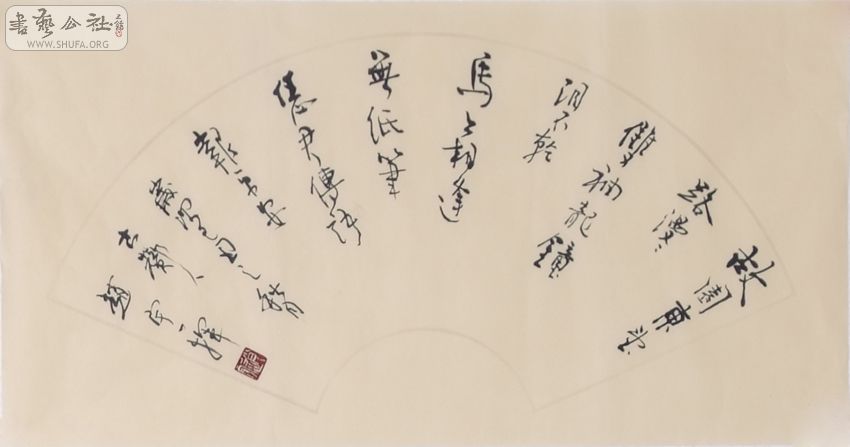 書藝公社
WWW.SHUFA.ORG
故園東望
路漫〻
雙袖龍鐘
泪不乾
馬上相逢
無紙筆
憑君傳語
報平安
歲
之秋
人